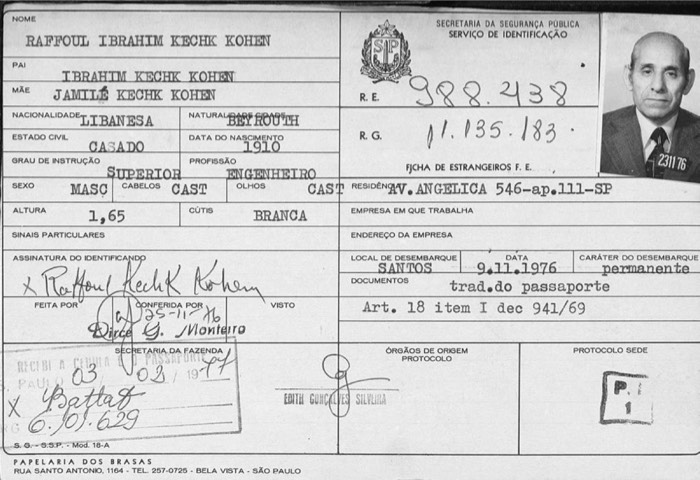 NOME
RAFFOUL IBRAHIM KECHK KOHEN
PAI
IBRAHIM KECHK KOHEN
MÃE
JAMILÉ KECHK KOHEN
NACIONALIDADE LIBANESA
BEYROUTH
ESTADO CIVIL
CASADO
DATA DO NASCIMENTO
1910
GRAU DE INSTRUÇÃO
SUPERIOR
PROFISSÃO
ENGENHEIRO
SEXO MASC
CABELOS CAST
OLHOS CAST
ALTURA 1,65
CÚTIS BRANCA
SINAIS PARTICULARES
ASSINATURA DO IDENTIFICANDO
x Raffoul Kechk Kohen
FEITA POR
CONFERIDA POR
VISTO
25-11-76
Dirce G. Monteiro
SECRETARIA DA FAZENDA
RECIBI A
PASSAPORTE
03 03 / 1977
x Battat
6.101.629
S. G. - S.S.P. - Mod. 16-A
PAPELARIA DOS BRASAS
RUA SANTO ANTONIO, 1164 - TEL. 257-0725 - BELA VISTA - SÃO PAULO
SECRETARIA DA SEGURANÇA PÚBLICA
SERVIÇO DE IDENTIFICAÇÃO
SP
R. E. 988.438
R. G. 11.135.183
FICHA DE ESTRANGEIROS F. E.
231176
RESIDÊNCIA AV. ANGELICA 546-ap.111-SP
EMPRESA EM QUE TRABALHA
ENDEREÇO DA EMPRESA
LOCAL DE DESEMBARQUE
SANTOS
DATA
9.11.1976
CARÁTER DO DESEMBARQUE
permanente
DOCUMENTOS
trad.do passaporte
Art. 18 item I dec 941/69
ÓRGÃOS DE ORIGEM
PROTOCOLO
PROTOCOLO SEDE
EDITH GONÇALVES SILVEIRA
P. I
1